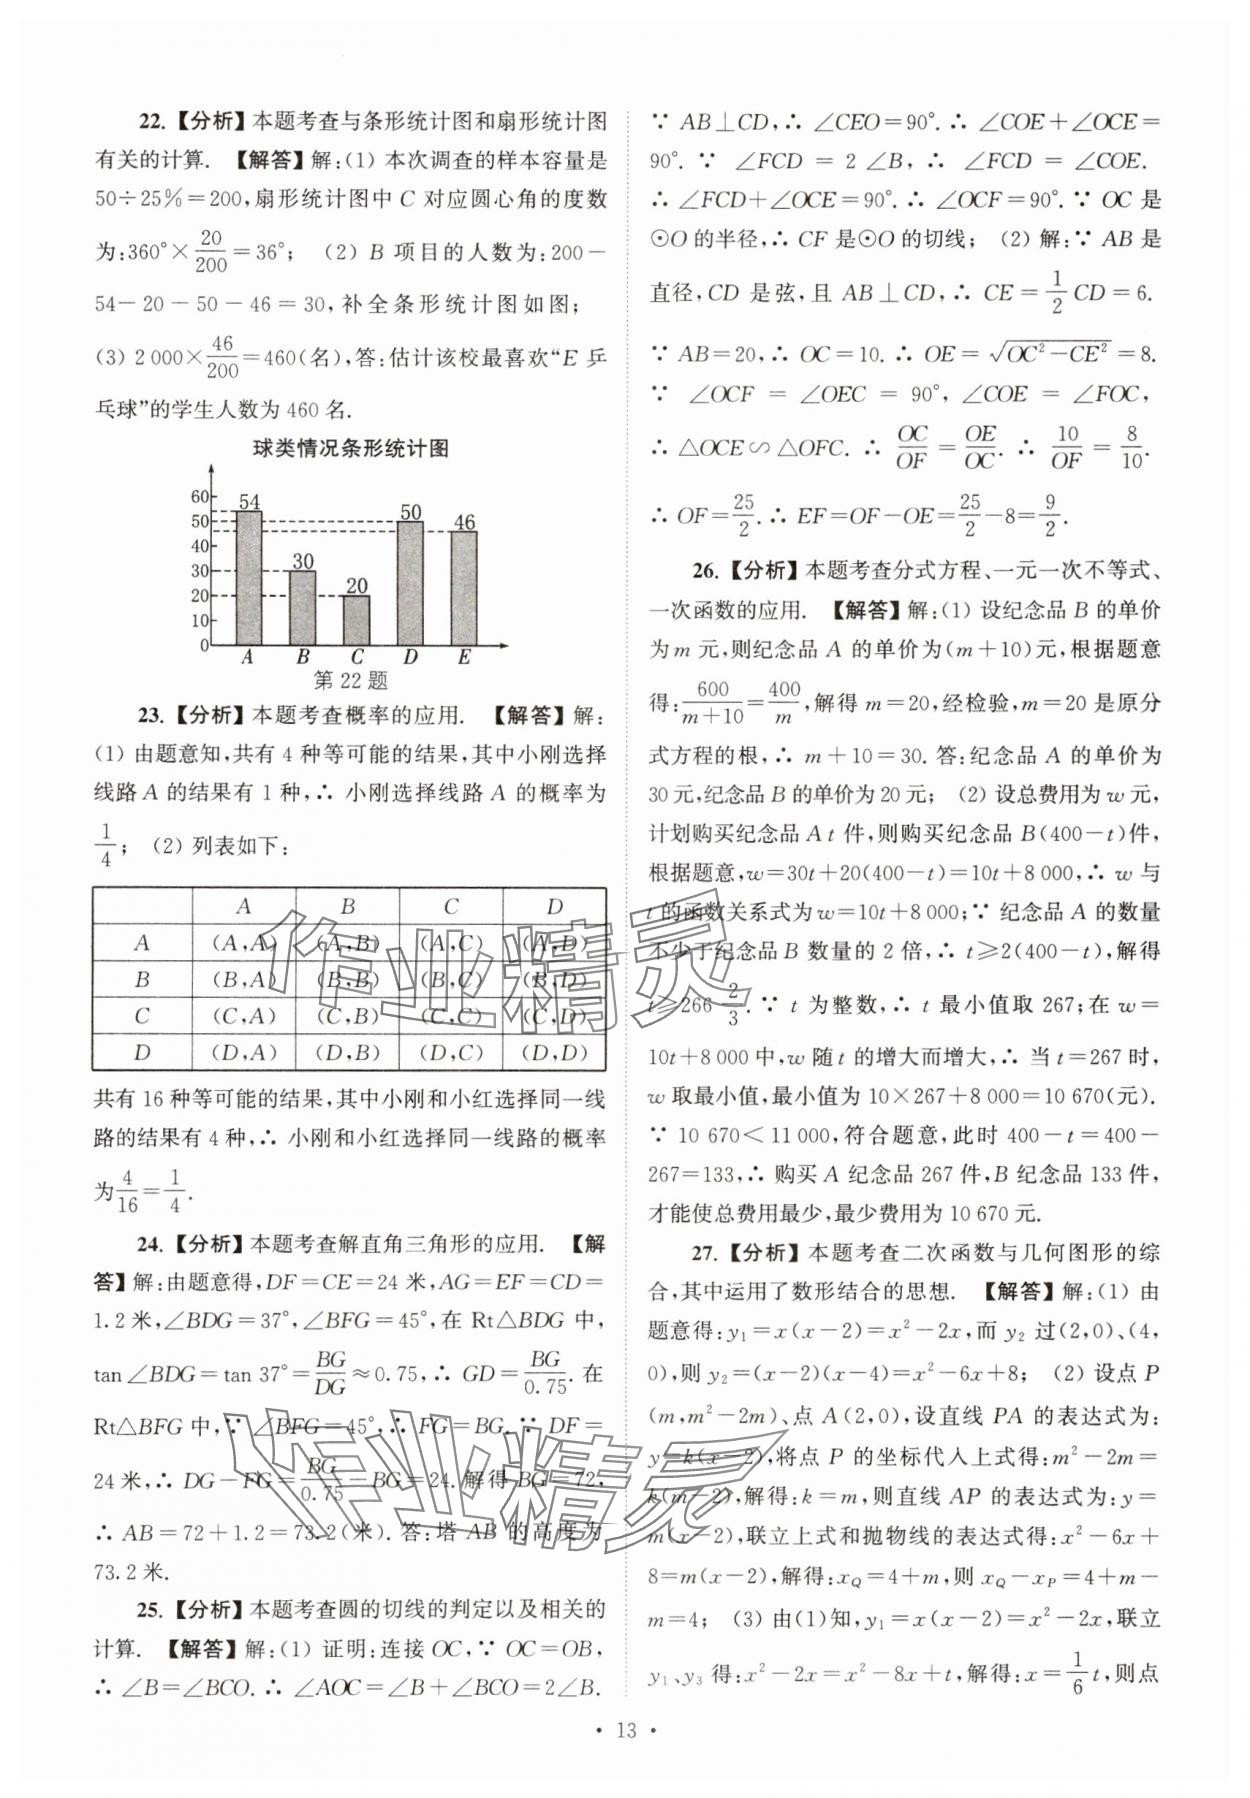 22.【分析】本题考查与条形统计图和扇形统计图
有关的计算. 【解答】解:(1) 本次调查的样本容量是
50÷25%=200,扇形统计图中 C 对应圆心角的度数
为:360°×20/200=36°; (2) B 项目的人数为:200-
54-20-50-46=30,补全条形统计图如图;
(3) 2 000×46/200=460(名),答:估计该校最喜欢“E 乒
乓球”的学生人数为 460 名.
球类情况条形统计图
60
50
40
30
20
10
0
54
30
20
50
46
A B C D E
第 22 题
23.【分析】本题考查概率的应用. 【解答】解:
(1) 由题意知,共有 4 种等可能的结果,其中小刚选择
线路 A 的结果有 1 种,∴ 小刚选择线路 A 的概率为
1/4; (2) 列表如下:
A B C D
A (A,A) (A,B) (A,C) (A,D)
B (B,A) (B,B) (B,C) (B,D)
C (C,A) (C,B) (C,C) (C,D)
D (D,A) (D,B) (D,C) (D,D)
共有 16 种等可能的结果,其中小刚和小红选择同一线
路的结果有 4 种,∴ 小刚和小红选择同一线路的概率
为4/16=1/4.
24.【分析】本题考查解直角三角形的应用. 【解
答】解:由题意得,DF=CE=24 米,AG=EF=CD=
1.2 米,∠BDG=37°,∠BFG=45°,在 Rt△BDG 中,
tan∠BDG=tan 37°=BG/DG≈0.75,∴ GD=BG/0.75.在
Rt△BFG 中,∵ ∠BFG=45°,∴ FG=BG.∵ DF=
24 米,∴ DG-FG=BG/0.75-BG=24.解得 BG=72,
∴ AB=72+1.2=73.2(米).答:塔 AB 的高度为
73.2 米.
25.【分析】本题考查圆的切线的判定以及相关的
计算. 【解答】解:(1) 证明:连接 OC,∵ OC=OB,
∴ ∠B=∠BCO.∴ ∠AOC=∠B+∠BCO=2∠B.
∵ AB⊥CD,∴ ∠CEO=90°.∴ ∠COE+∠OCE=
90°.∵ ∠FCD = 2∠B,∴ ∠FCD = ∠COE.
∴ ∠FCD+∠OCE=90°.∴ ∠OCF=90°.∵ OC 是
⊙O 的半径,∴ CF 是⊙O 的切线; (2) 解:∵ AB 是
直径,CD 是弦,且 AB⊥CD,∴ CE=1/2 CD=6.
∵ AB=20,∴ OC=10.∴ OE=√(OC²-CE²)=8.
∵ ∠OCF = ∠OEC = 90°,∠COE = ∠FOC,
∴ △OCE∽△OFC.∴ OC/OF=OE/OC.∴ 10/OF=8/10.
∴ OF=25/2.∴ EF=OF-OE=25/2-8=9/2.
26.【分析】本题考查分式方程、一元一次不等式、
一次函数的应用. 【解答】解:(1) 设纪念品 B 的单价
为 m 元,则纪念品 A 的单价为(m+10)元,根据题意
得:600/(m+10)=400/m,解得 m=20,经检验,m=20 是原分
式方程的根,∴ m+10=30.答:纪念品 A 的单价为
30 元,纪念品 B 的单价为 20 元; (2) 设总费用为 w 元,
计划购买纪念品 A t 件,则购买纪念品 B(400-t)件,
根据题意,w=30t+20(400-t)=10t+8 000,∴ w 与
t 的函数关系式为 w=10t+8 000;∵ 纪念品 A 的数量
不少于纪念品 B 数量的 2 倍,∴ t≥2(400-t),解得
t≥266 2/3.∵ t 为整数,∴ t 最小值取 267;在 w=
10t+8 000 中,w 随 t 的增大而增大,∴ 当 t=267 时,
w 取最小值,最小值为 10×267+8 000=10 670(元).
∵ 10 670<11 000,符合题意,此时 400-t=400-
267=133,∴ 购买 A 纪念品 267 件,B 纪念品 133 件,
才能使总费用最少,最少费用为 10 670 元.
27.【分析】本题考查二次函数与几何图形的综
合,其中运用了数形结合的思想. 【解答】解:(1) 由
题意得:y₁=x(x-2)=x²-2x,而 y₂ 过(2,0)、(4,
0),则 y₂=(x-2)(x-4)=x²-6x+8; (2) 设点 P
(m,m²-2m)、点 A(2,0),设直线 PA 的表达式为:
y=k(x-2),将点 P 的坐标代入上式得:m²-2m=
k(m-2),解得:k=m,则直线 AP 的表达式为:y=
m(x-2),联立上式和抛物线的表达式得:x²-6x+
8=m(x-2),解得:x_Q=4+m,则 x_Q-x_P=4+m-
m=4; (3) 由(1)知,y₁=x(x-2)=x²-2x,联立
y₁、y₃ 得:x²-2x=x²-8x+t,解得:x=1/6 t,则点
• 13 •
作业精灵
作业精灵